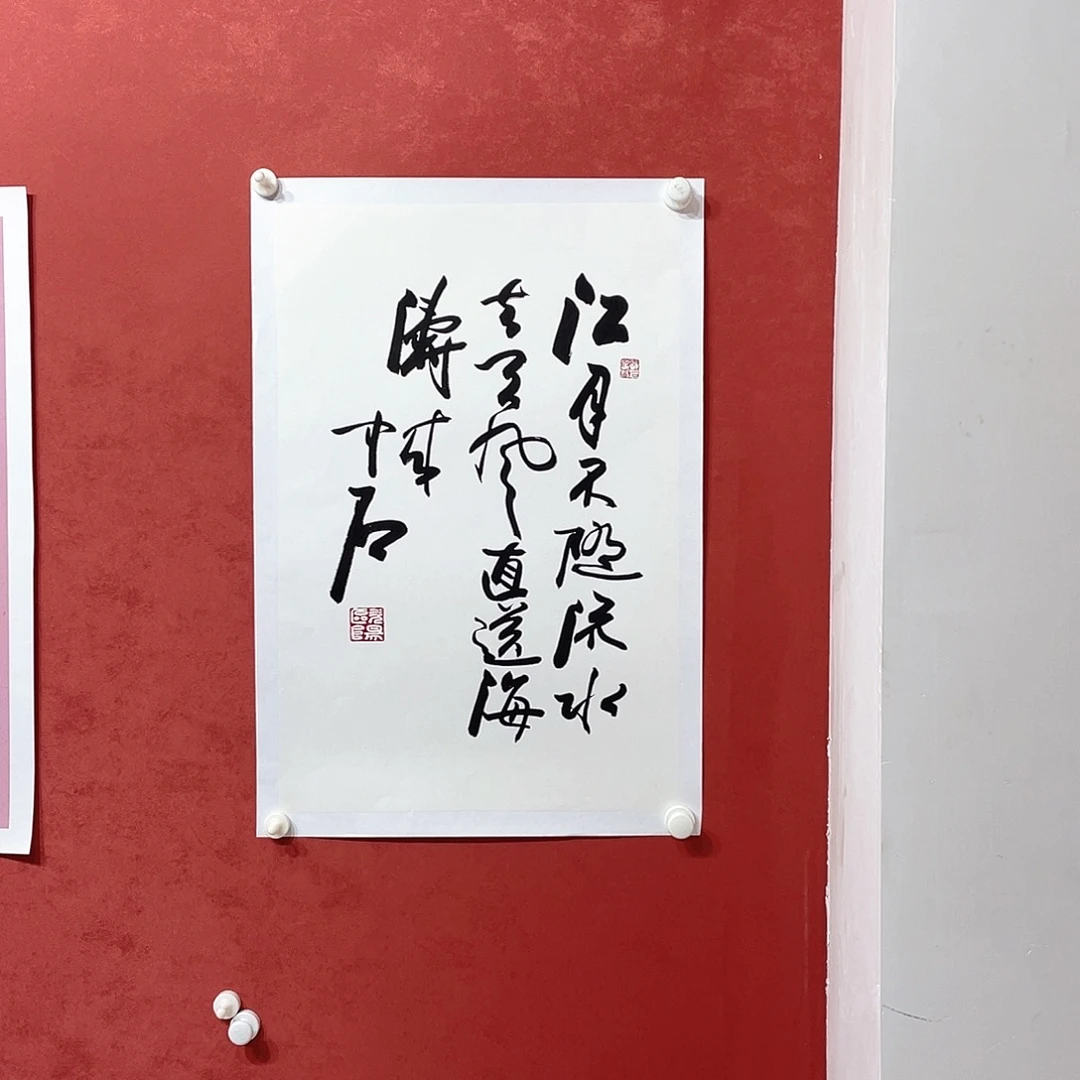 江月不隨流水
去天風直送海
濤来
中石